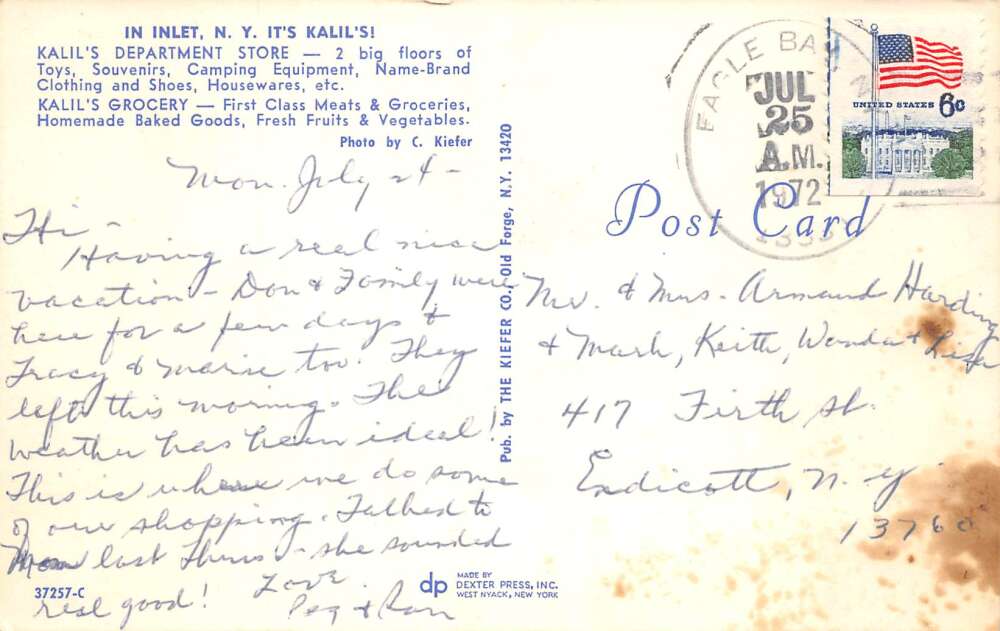 IN INLET, N. Y. IT'S KALIL'S!
KALIL'S DEPARTMENT STORE — 2 big floors of
Toys, Souvenirs, Camping Equipment, Name-Brand
Clothing and Shoes, Housewares, etc.
KALIL'S GROCERY — First Class Meats & Groceries,
Homemade Baked Goods, Fresh Fruits & Vegetables.
Photo by C. Kiefer
Mon. July 24 -
Hi -
Having a real nice
vacation - Don & Family were
here for a few days &
Tracy & too. They
left this morning. The
weather has been ideal!
This is where we do some
of our shopping. Talked to
Mom last Thurs - she sounded
real good!
Love
Peg &
37257-C
Pub. by THE KIEFER CO., Old Forge, N.Y. 13420
dp
MADE BY
DEXTER PRESS, INC.
WEST NYACK, NEW YORK
EAGLE BAY
JUL
25
A.M.
1972
UNITED STATES 6c
Post Card
Mr. & Mrs. Armand Harding
& Mark, Keith, Wanda & Lisa
417 Firth St.
Endicott, N. Y
13760